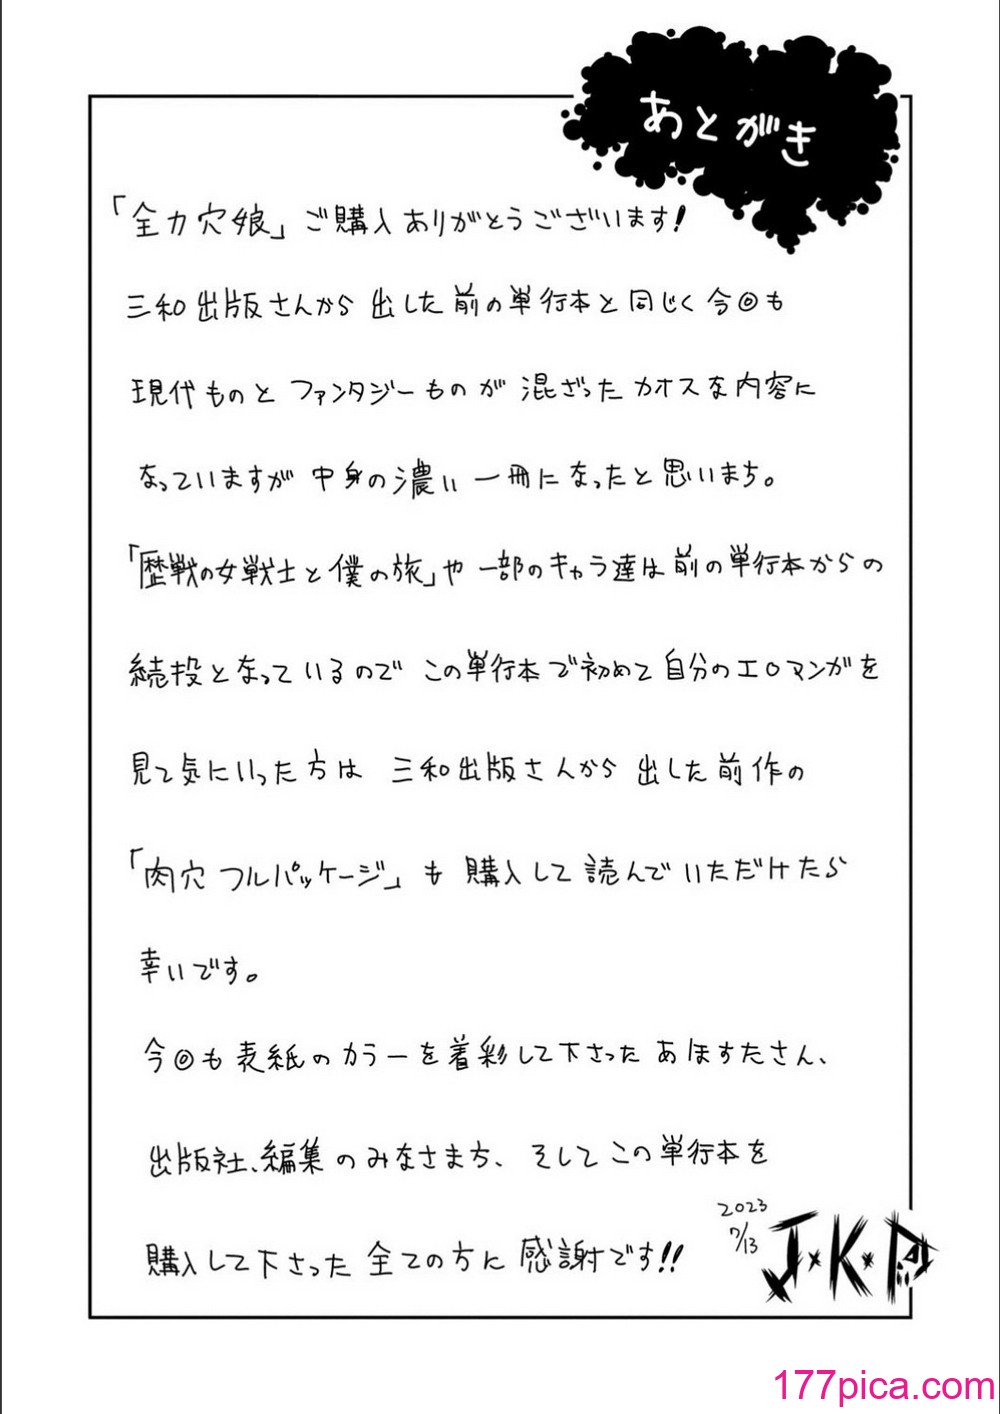 あとがき
「全力穴娘」ご購入ありがとうございます!
三和出版さんから出した前の単行本と同じく今回も
現代ものとファンタジーものが混ざったカオスな内容に
なっていますが中身の濃い一冊になったと思いまち。
「歴戦の女戦士と僕の旅」や一部のキャラ達は前の単行本からの
続投となっているのでこの単行本で初めて自分のエロマンガを
見て気にいった方は三和出版さんから出した前作の
「肉穴フルパッケージ」も購入して読んでいただけたら
幸いです。
今回も表紙のカラーを着彩して下さったあほすたさん、
出版社、編集のみなさまち、そしてこの単行本を
購入して下さった全ての方に感謝です!!
2023
7/13
J・K・P
177pica.com